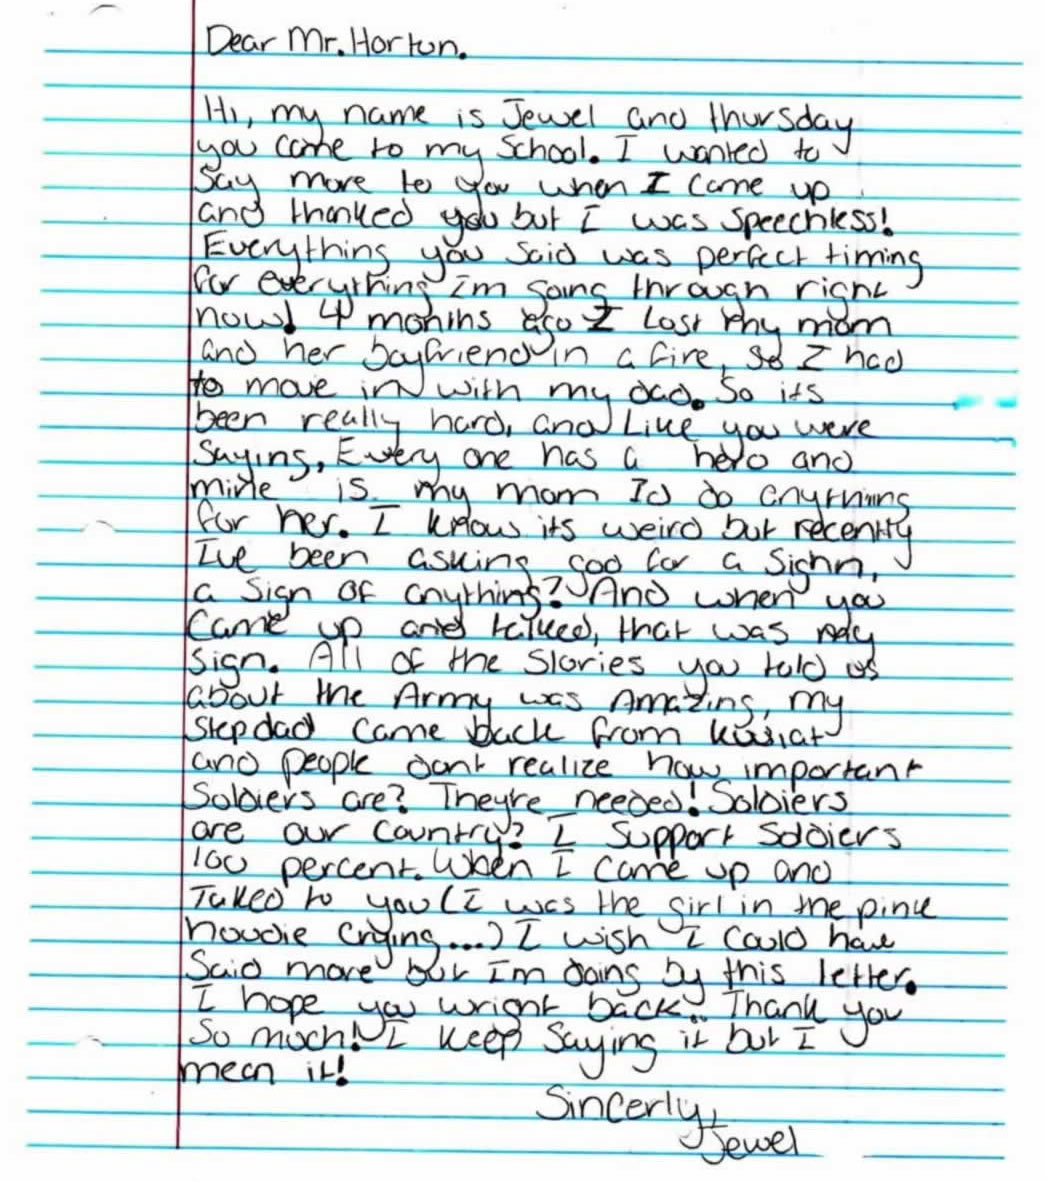 Dear Mr. Horton.
Hi, my name is Jewel and thursday
you came to my School. I wanted to
Say more to you when I came up
and thanked you but I was speechless!
Everything you said was perfect timing
for everything Im going through right
now! 4 months ago I Lost my mom
and her boyfriend in a fire, so I had
to move in with my dad. So its
been really hard, and Like you were
Saying, Every one has a hero and
mine is my mom Id do anything
for her. I know its weird but recently
Ive been asking god for a Sighn,
a Sign of anything? And when you
Came up and talked, that was my
sign. All of the Stories you told us
about the Army was Amazing, my
stepdad came back from
and people dont realize how important
Soldiers are? Theyre needed! Soldiers
are our Country? I Support Soldiers
100 percent. When I came up and
Talked to you (I was the girl in the pink
hoodie crying....) I wish I could have
Said more but Im doing by this letter.
I hope you wright back.. Thank you
So much! I keep Saying it but I
mean it!
Sincerly,
Jewel